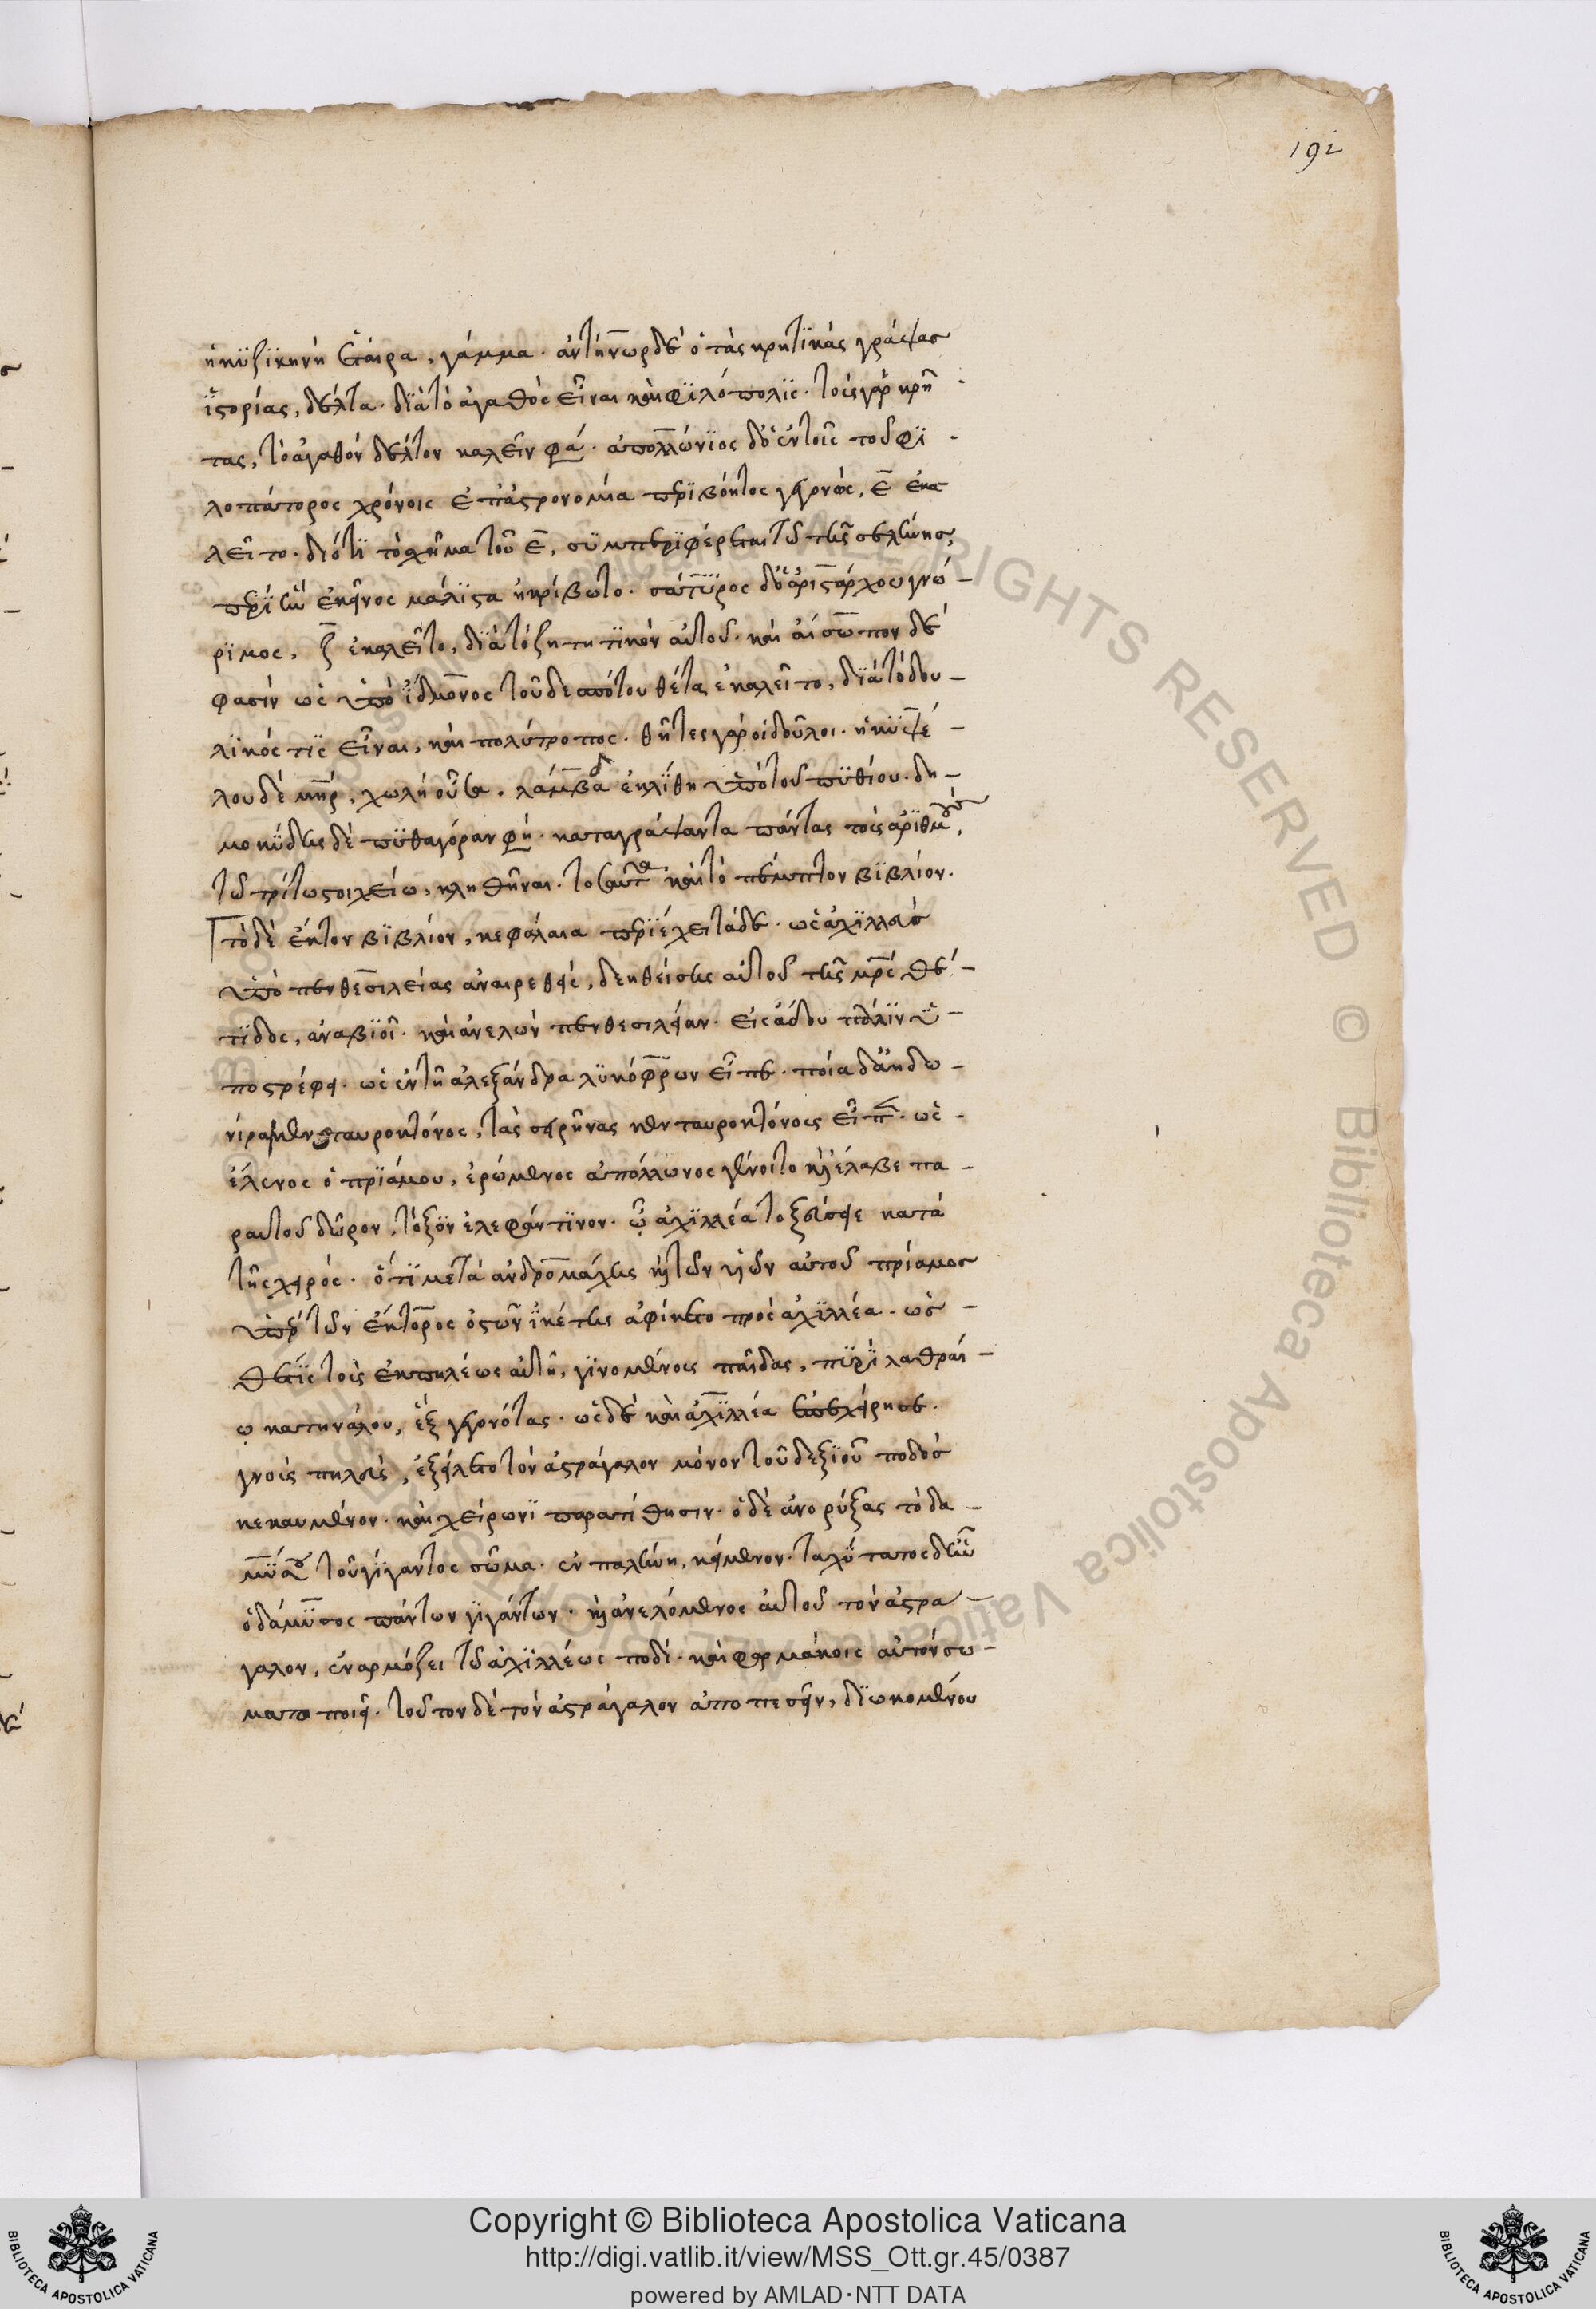 192
ἡ κυζικηνὴ ἑταίρα, γάμμα. ἀντήνωρ δὲ ὁ τὰς κρητικὰς γράψας
ἱστορίας, δέλτα. διὰ τὸ ἀγαθὸς εἶναι καὶ φιλόπολις. τοὺς γὰρ κρῆ-
τας, τὸ ἀγαθὸν δέλτον καλεῖν φα. ἀπολλώνιος δὲ ὁ ἐν τοῖς τοῦ φι-
λοπάτορος χρόνοις ἐπ' ἀστρονομία περιβόητος γεγονὼς, ε ἐκα-
λεῖτο. διότι τὸ σχῆμα τοῦ ε, συμπεριφέρεται τῶ τῆς σελήνης,
περὶ ἣν ἐκεῖνος μάλιστα ἠκρίβωτο. σάτυρος δὲ ὁ ἀριστάρχου γνώ-
ριμος, ζ ἐκαλεῖτο, διὰ τὸ ζητητικὸν αὐτοῦ. καὶ αἴσωπον δὲ
φασὶν ὡς ὑπὸ ἴδμονος τοῦ δεσπότου θέτα ἐκαλεῖτο, διὰ τὸ δου-
λικός τις εἶναι, καὶ πολύτροπος. θῆτες γὰρ οἱ δοῦλοι. ἡ κυψέ-
λου δὲ μηρ, χωλὴ οὖσα. λάμβδα ἐκλίθη ὑπὸ τοῦ πυθίου. δη-
μοκύδης δὲ πυθαγόραν φη. καταγράψαντα πάντας τοὺς ἀριθμοὺς,
τῶ τρίτω στοιχείω, κληθῆναι. τοσαῦτα καὶ τὸ πέμπτον βιβλίον.
τὸ δὲ ἕκτον βιβλίον, κεφάλαια περιέχει τάδε. ὡς ἀχιλλεὺς
ὑπὸ πενθεσιλείας ἀναιρεθεὶς, δεηθείσης αὐτοῦ τῆς μρς θέ-
τιδος, ἀναβιοῖ. καὶ ἀνελὼν πενθεσίλειαν. εἰς ἅδου πάλιν ὑ-
ποστρέφει. ὡς ἐν τῆ ἀλεξάνδρα λυκόφρων εἶπε. ποία δ' ἀηδω-
νίρα κενταυροκτόνος, τὰς σειρῆνας κενταυροκτόνους εἶπε. ὡς
ἕλενος ὁ πριάμου, ἐρώμενος ἀπόλλωνος γένοιτο καὶ ἔλαβε πα-
ρ' αὐτοῦ δῶρον, τόξον ἐλεφάντινον. ᾧ ἀχιλλέα τοξεύσειε κατὰ
τῆς χειρός. ὅτι μετὰ ἀνδρομάχης καὶ τῶν υἱῶν αὐτοῦ πρίαμος
ὑπὲρ τῶν ἕκτορος ὀστῶν ἱκέτης ἀφίκετο πρὸς ἀχιλλέα. ὡς
θέτις τοὺς ἐκ πηλέως αὐτῆ, γινομένους παῖδας, πυρὶ λαθραί-
ω κατηνάλου, ἓξ γεγονότας. ὡς δὲ καὶ ἀχιλλέα ἐπεχείρησε.
γνοὺς πηλεὺς, ἐξείλετο τὸν ἀστράγαλον μόνον τοῦ δεξιοῦ ποδὸς
κεκαυμένον. καὶ χείρωνι παρατίθησιν. ὁ δὲ ἀνορύξας τὸ δα-
μύσου τοῦ γίγαντος σῶμα. ἐν παλήνη, κείμενον. ταχύτατος δὲ ἦν
ὁ δάμυσος πάντων γιγάντων. καὶ ἀνελόμενος αὐτοῦ τὸν ἀστρά-
γαλον, ἐναρμόζει τῶ ἀχιλλέως ποδί. καὶ φαρμάκοις αὐτὸν σω-
ματοποιεῖ. τοῦτον δὲ τὸν ἀστράγαλον ἀποπεσεῖν, διωκομένου
Copyright © Biblioteca Apostolica Vaticana
http://digi.vatlib.it/view/MSS_Ott.gr.45/0387
powered by AMLAD·NTT DATA
BIBLIOTECA APOSTOLICA VATICANA
BIBLIOTECA APOSTOLICA VATICANA